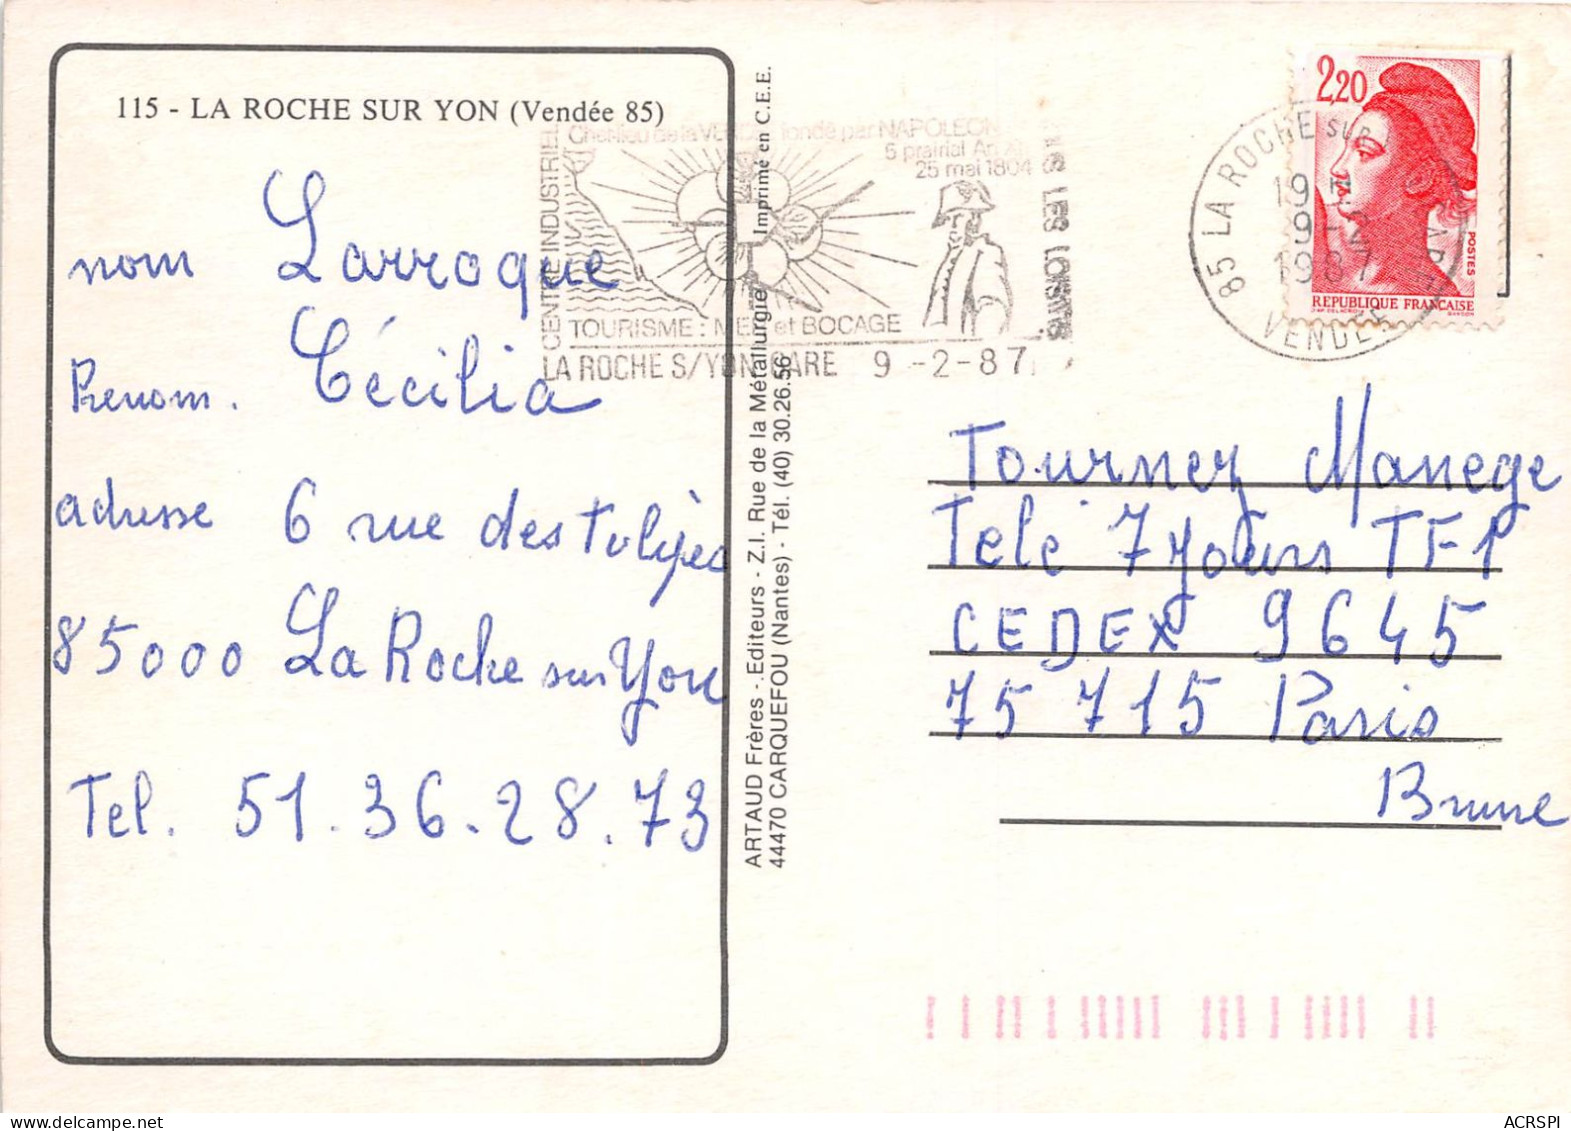 115 - LA ROCHE SUR YON (Vendée 85)
nom Larroque
Prenom. Cécilia
adresse 6 rue des Tulipes
85000 La Roche sur Yon
Tel. 51.36.28.73
ARTAUD Frères - Editeurs - Z.I. Rue de la Métallurgie Imprimé en C.E.E.
44470 CARQUEFOU (Nantes) - Tél. (40) 30.26.56
CENTRE INDUSTRIEL
Chef-lieu de la VENDÉE fondé par NAPOLEON
5 prairial An
25 mai 1804
LES LOISIRS
TOURISME: MER et BOCAGE
LA ROCHE S/YON GARE 9-2-87
2,20
POSTES
REPUBLIQUE FRANCAISE
85 LA ROCHE SUR
19 H
9-2
1987
VENDEE
Tournez Manege
Tele 7 Jours TF1
CEDEX 9645
75 715 Paris
Brune
ACRSPI